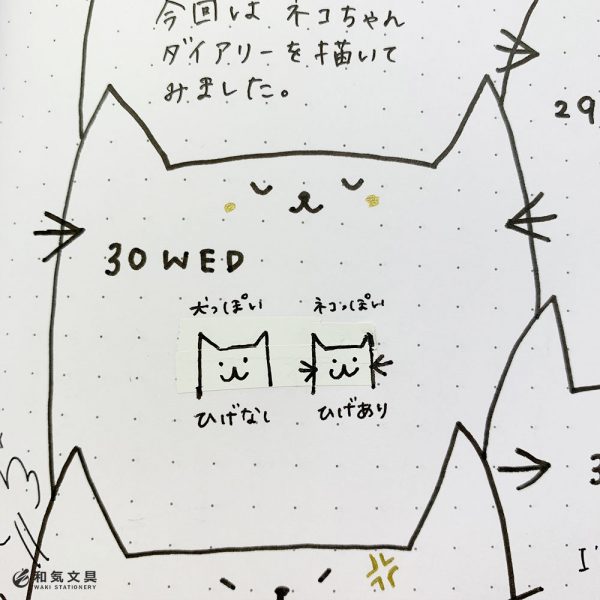 今回は ネコちゃん
ダイアリーを描いて
みました。
29
30 WED
犬っぽい
ネコっぽい
ひげなし
ひげあり
I'
和気文具
WAKI STATIONERY